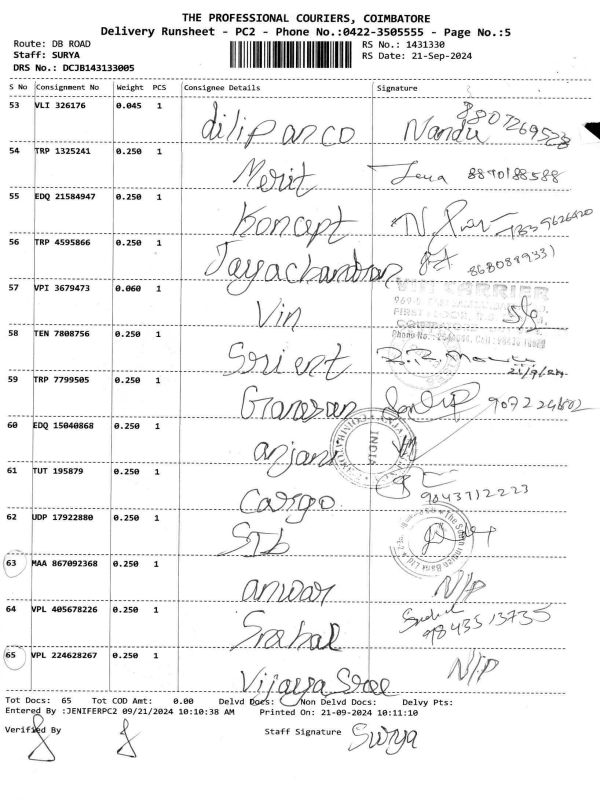 THE PROFESSIONAL COURIERS, COIMBATORE
Delivery Runsheet - PC2 - Phone No.:0422-3505555 - Page No.:5
Route: DB ROAD
Staff: SURYA
DRS No.: DCJB143133005
RS No.: 1431330
RS Date: 21-Sep-2024
S No Consignment No Weight PCS Consignee Details Signature
53 VLI 326176 0.045 1 dilip anco Nandu 8807269528
54 TRP 1325241 0.250 1 Merit 8870188588
55 EDQ 21584947 0.250 1 Koncept
56 TRP 4595866 0.250 1 Jayachandran
57 VPI 3679473 0.060 1 Vin
VIN CARRIER
58 TEN 7808756 0.250 1 Sorient 21/9/24
59 TRP 7799505 0.250 1 Ganesan
60 EDQ 15040868 0.250 1 anjani
INDIA
61 TUT 195879 0.250 1 Cargo 9043712223
62 UDP 17922880 0.250 1 STB
The South Indian Bank Ltd
63 MAA 867092368 0.250 1 anwar N/P
64 VPL 405678226 0.250 1 Snehal 9843513735
65 VPL 224628267 0.250 1 Vijaya Sree N/P
Tot Docs: 65 Tot COD Amt: 0.00 Delvd Docs: Non Delvd Docs: Delvy Pts:
Entered By :JENIFERPC2 09/21/2024 10:10:38 AM Printed On: 21-09-2024 10:11:10
Verified By Staff Signature Surya